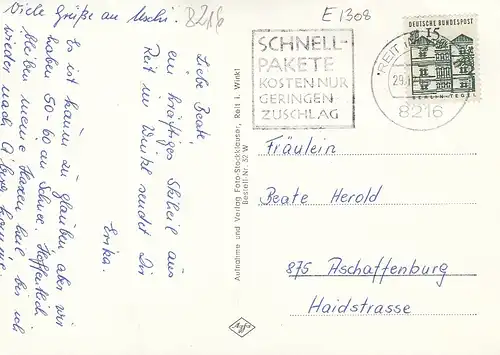 Viele Grüße an Uschi.
8216
E 1308
Liebe Beate
ein kräftiges Skiheil aus
Reit im Winkl sendet Dir
Erika.
Es ist kaum zu glauben aber wir
haben 50-60 cm Schnee. Hoffentlich
bleiben meine Haxen heil bis ich
wieder nach A'burg komme.
Aufnahme und Verlag Foto-Stockklauser, Reit i. Winkl
Bestell-Nr. 32 W
Agfa
SCHNELL-
PAKETE
KOSTEN NUR
GERINGEN
ZUSCHLAG
REIT
29.
8216
DEUTSCHE BUNDESPOST
15
BERLIN-TEGEL
Fräulein
Beate Herold
875 Aschaffenburg
Haidstrasse